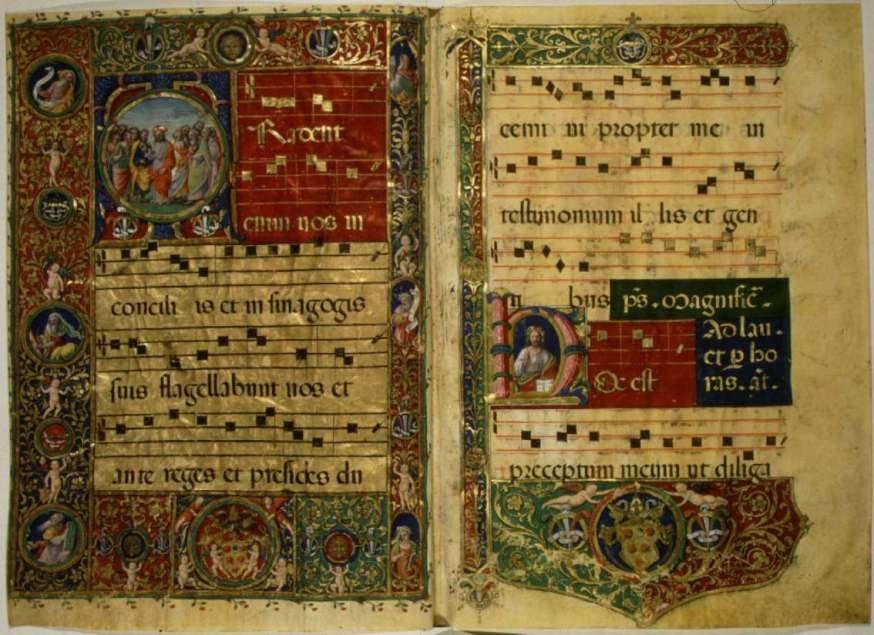 Tradent
enim uos in
concili is et in sinagogis
suis flagellabunt uos et
ante reges et presides du
cemi ni propter me in
testimonium il lis et gen
ti bus ps. Magnific̄.
Ad lau-
et ꝑ ho
Hoc est ras. an̄.
preceptum meum ut diliga